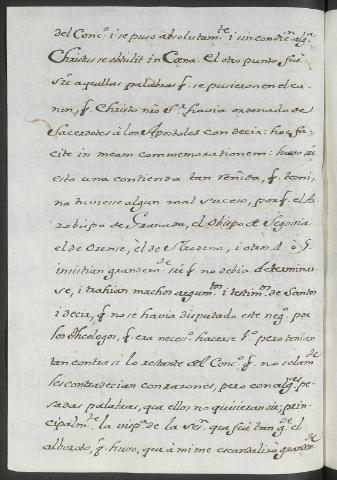 del Conc.º i se puso absolutam.te i sin condiz.n alg.a
Christus se obtulit in Cœna. El otro punto fuè
sre aquellas palabras q. se pusieron en el ca-
non, q. Christo nro S.r havia ordenado de
Sacerdotes à los Apostoles con decir: hoc fa-
cite in meam commemorationem: huvo sre
esto una contienda tan reñida, q. temi,
no tuviesse algun mal suceso, porq. el Ar-
zobispo de Granada, el Obispo de Segovia
el de Orense, el de Modena, i otros 4 ò 5
insistian grandem.te sre q. no debia determinar-
se, i trahian muchos argum.tos i testim.os de Santos
i decir, q. no se havia disputado este neg.º por
los Theologos, q. era neces.º hacerse 1.º pero tenian
tan contra si lo restante del Conc.º q. no solam.te
les contradecian con razones, pero con alg.s pe-
sadas palabras, que ellos no quisieran oir; prin-
cipalm.te la visp.a de la Ses.n que fuè tan g.de el
alboroto, q. huvo, que à mi me escandalizò grandem.te